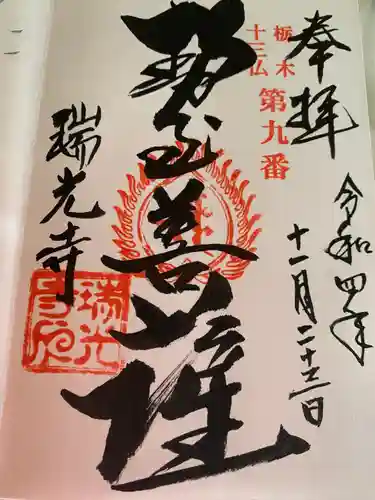 奉拝
令和四年
十一月二十三日
栃木
十三仏
第九番
勢至菩薩
瑞光寺
瑞光
寺印